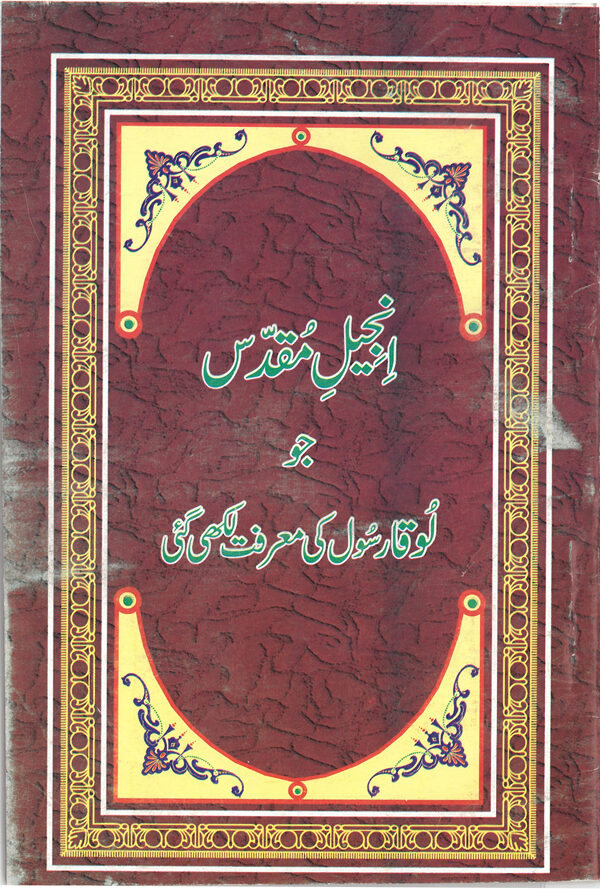 اِنجیلِ مُقدّس
جو
لُوقا رسُول کی معرفت لکھی گئی